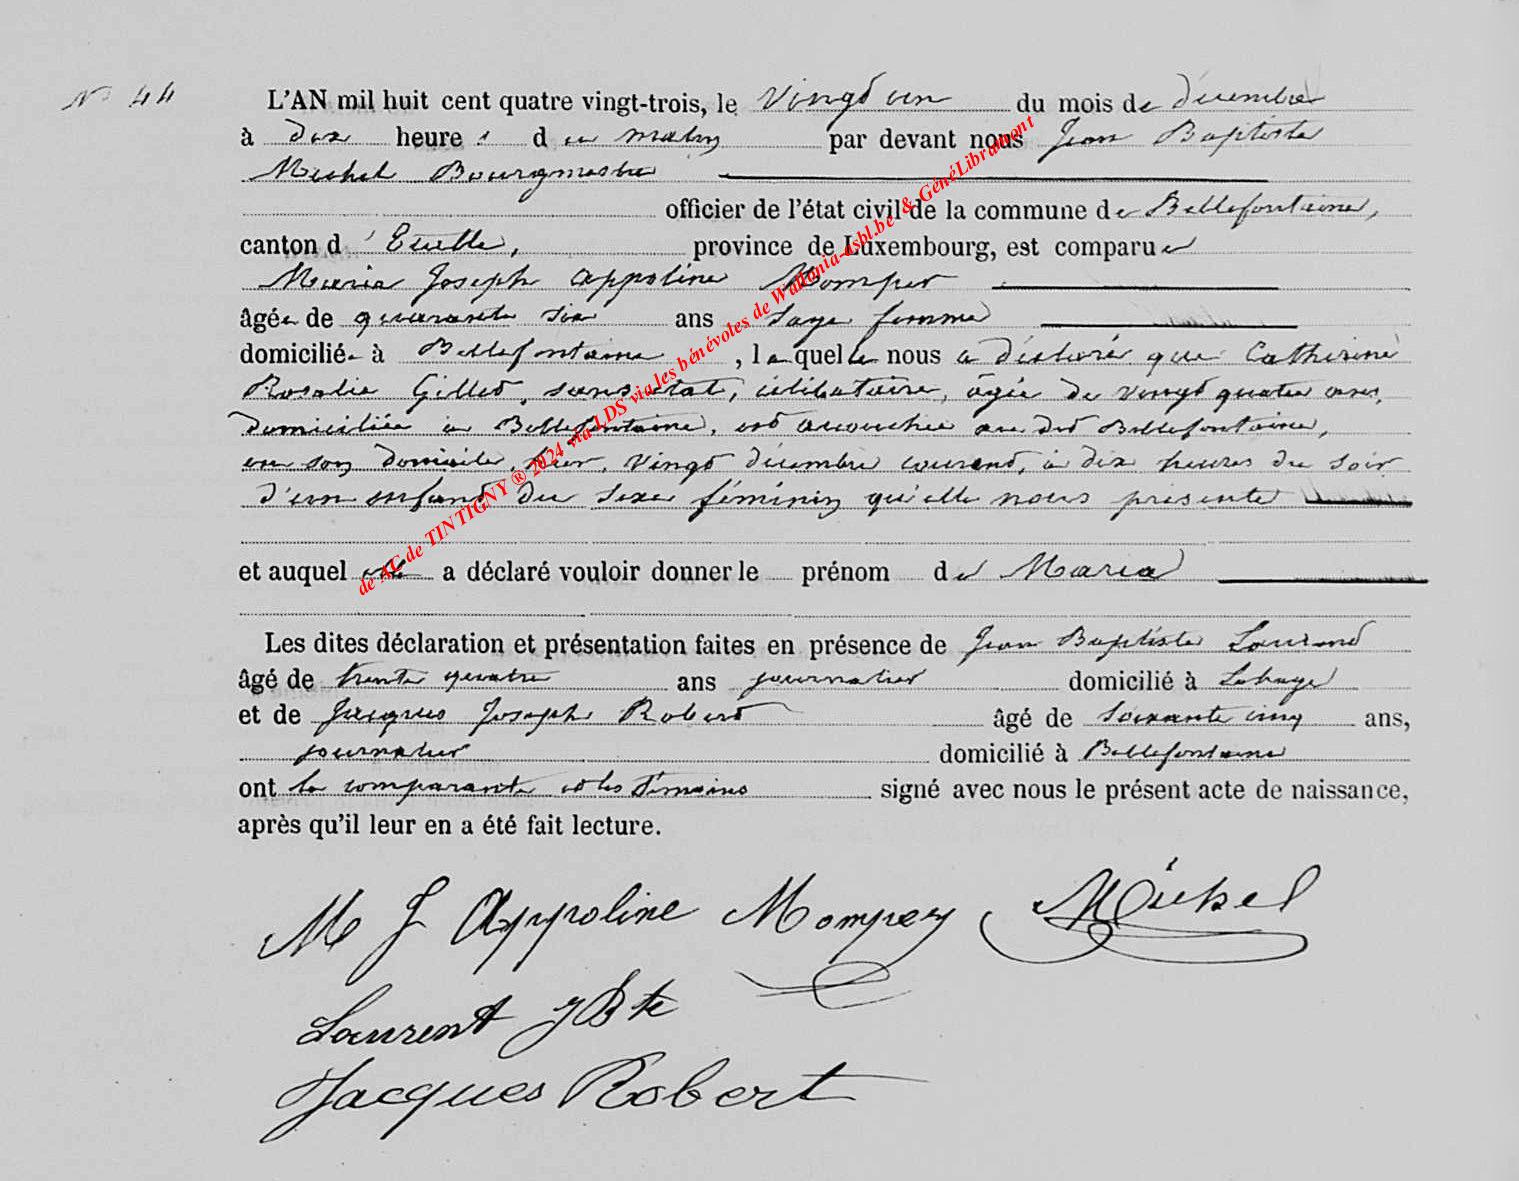 N° 44
L'AN mil huit cent quatre vingt-trois, le Vingt un du mois de décembre
à dix heures du matin par devant nous Jean Baptiste
Michel Bourgmestre
officier de l'état civil de la commune de Bellefontaine,
canton d'Etalle, province de Luxembourg, est comparue
Marie Joseph Appoline
âgée de quarante six ans Sage femme
domiciliée à Bellefontaine, laquelle nous a déclaré que Catherine
Rosalie Gillet, sans état, célibataire, âgée de vingt quatre ans,
domiciliée à Bellefontaine, est accouchée au dit Bellefontaine,
en son domicile, hier, vingt décembre courant, à dix heures du soir
d'un enfant du sexe féminin qu'elle nous présente
et auquel elle a déclaré vouloir donner le prénom de Maria
Les dites déclaration et présentation faites en présence de Jean Baptiste Laurent
âgé de trente quatre ans journalier domicilié à Lahage
et de Jacques Joseph Robert âgé de soixante cinq ans,
journalier domicilié à Bellefontaine
ont la comparante et les témoins signé avec nous le présent acte de naissance,
après qu'il leur en a été fait lecture.
M J Appoline Michel
Laurent J Bte
Jacques Robert
de AC de TINTIGNY ® 2024 via LDS via les bénévoles de Wallonia-asbl.be & GénéLibramont